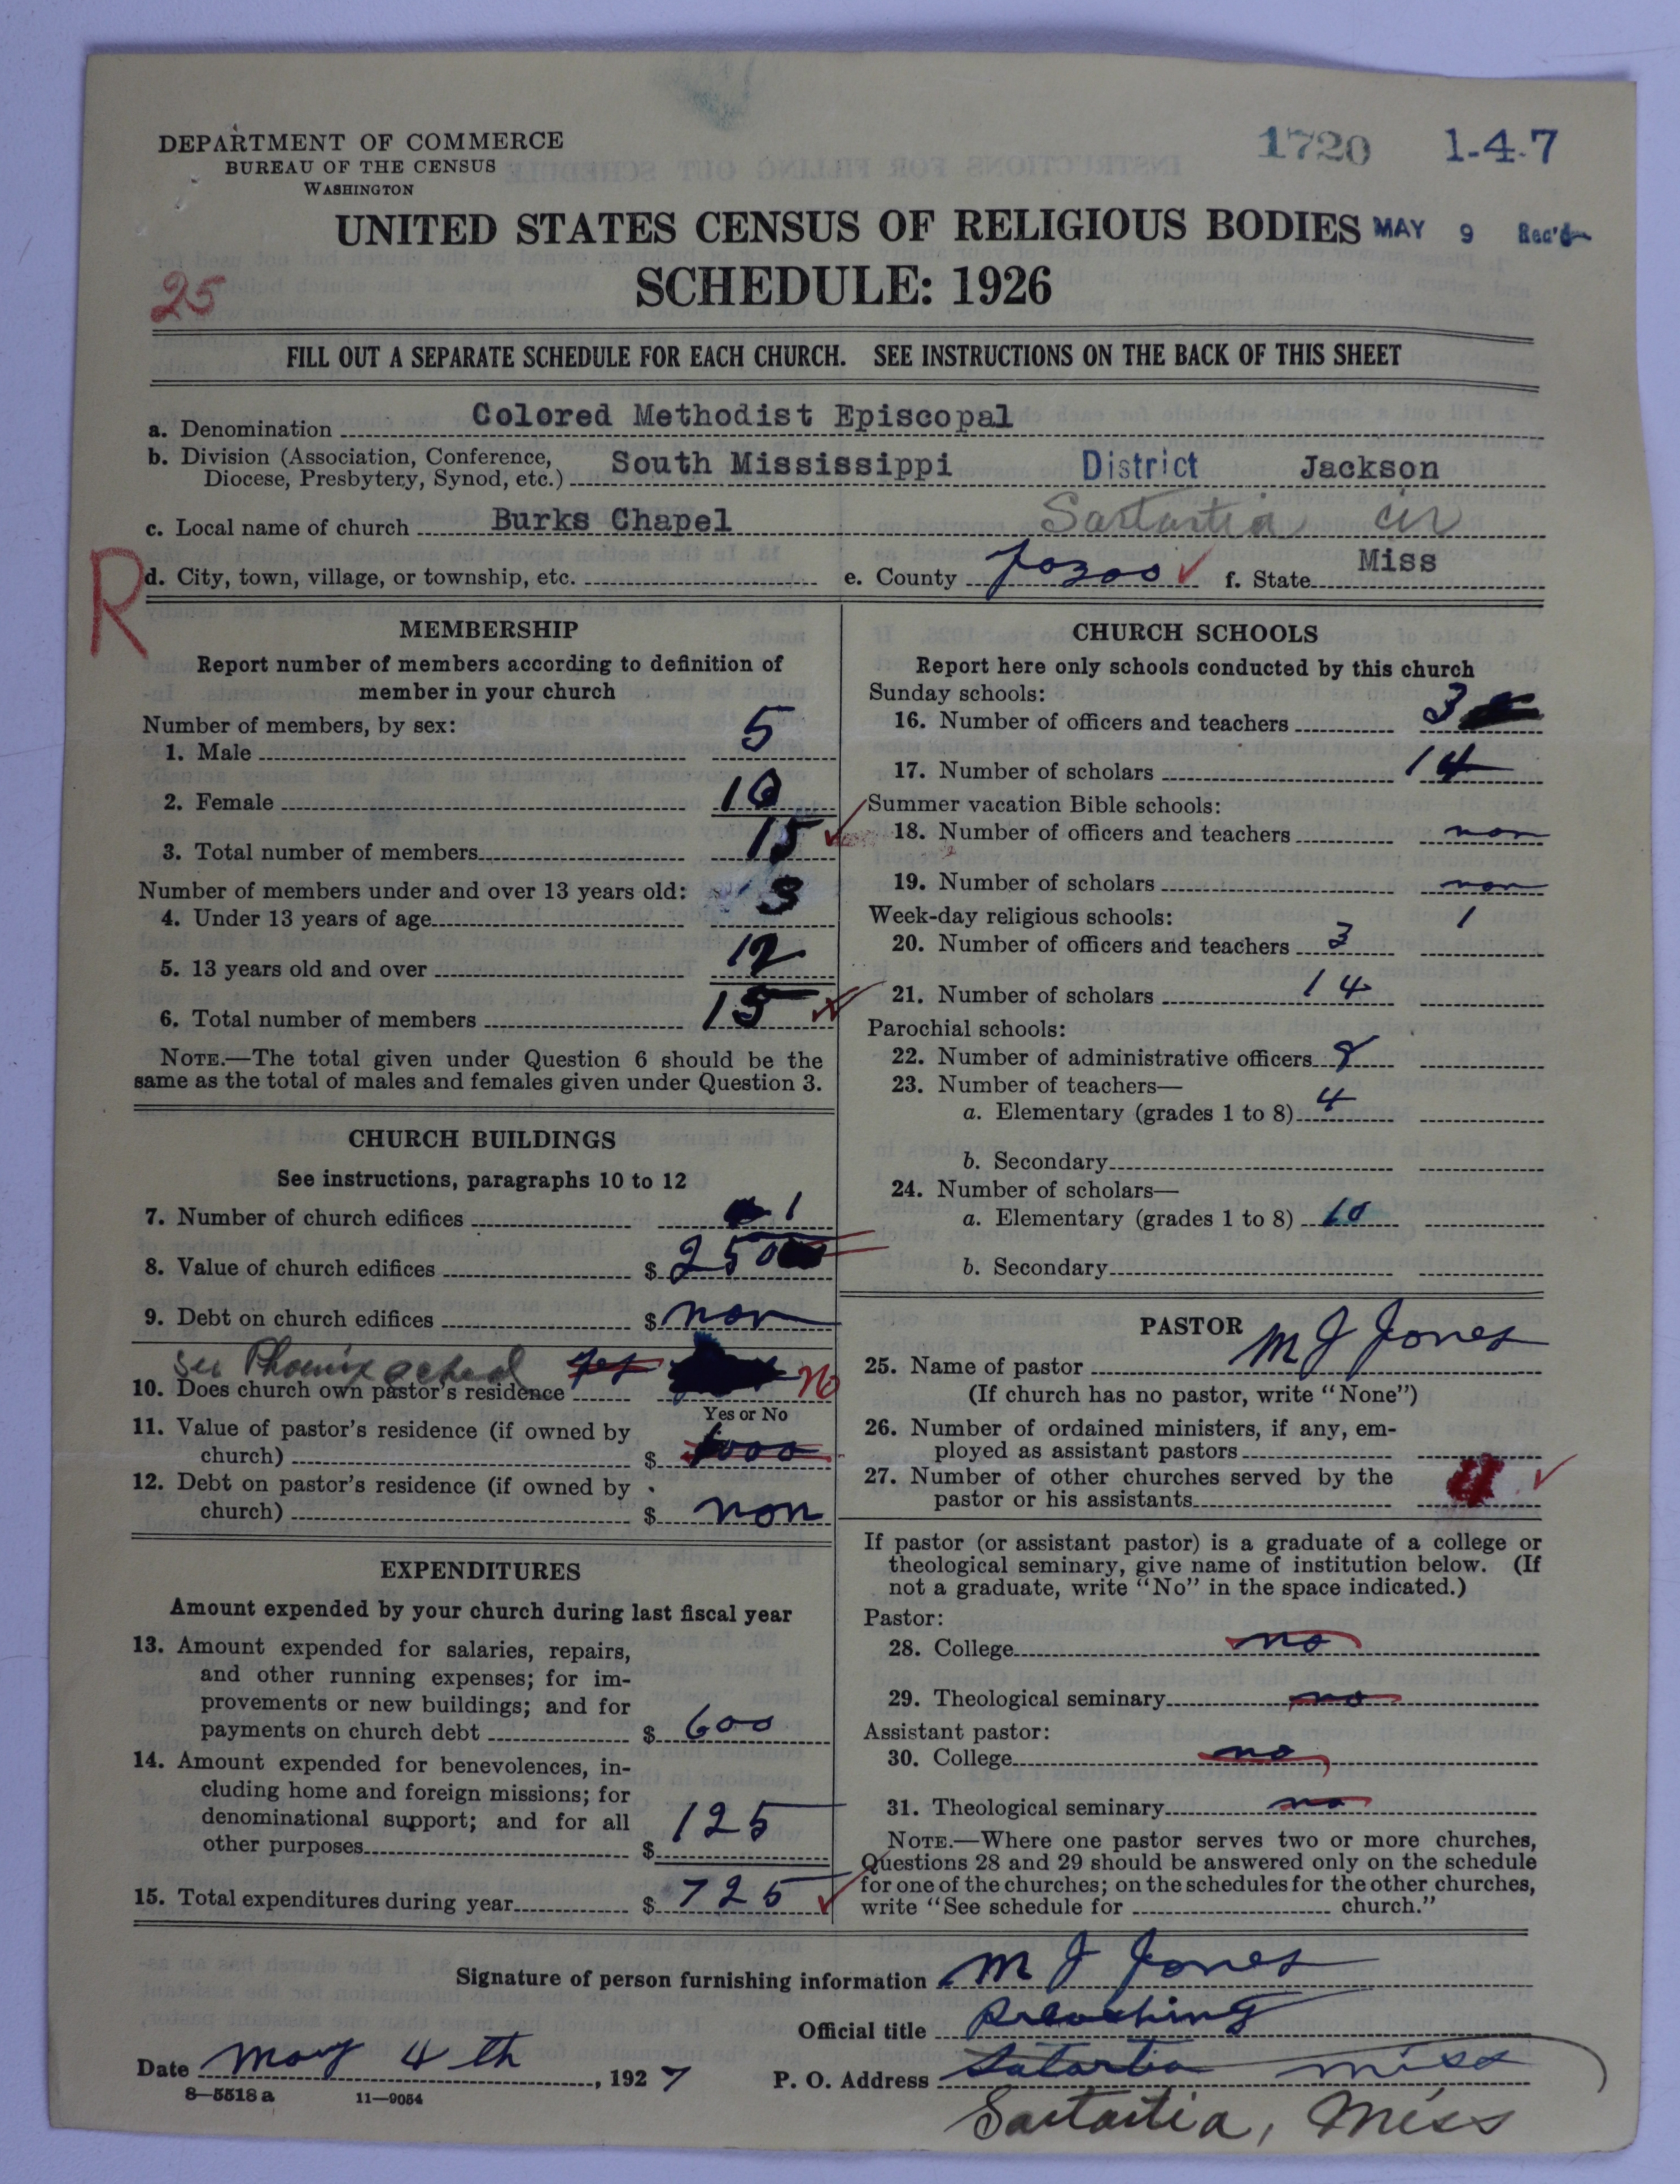 DEPARTMENT OF COMMERCE
BUREAU OF THE CENSUS
WASHINGTON
1720 1-4-7
UNITED STATES CENSUS OF RELIGIOUS BODIES MAY 9 Rec'd
SCHEDULE: 1926
25
FILL OUT A SEPARATE SCHEDULE FOR EACH CHURCH. SEE INSTRUCTIONS ON THE BACK OF THIS SHEET
a. Denomination Colored Methodist Episcopal
b. Division (Association, Conference, Diocese, Presbytery, Synod, etc.) South Mississippi District Jackson
c. Local name of church Burks Chapel Sartartia cir
R
d. City, town, village, or township, etc. e. County Yozoo f. State Miss
MEMBERSHIP
Report number of members according to definition of
member in your church
Number of members, by sex:
1. Male 5
2. Female 10
3. Total number of members 15
Number of members under and over 13 years old:
4. Under 13 years of age 3
5. 13 years old and over 12
6. Total number of members 15
NOTE.—The total given under Question 6 should be the
same as the total of males and females given under Question 3.
CHURCH BUILDINGS
See instructions, paragraphs 10 to 12
7. Number of church edifices 1
8. Value of church edifices $ 250
9. Debt on church edifices $ non
See Phoenix sched
10. Does church own pastor's residence yes No
Yes or No
11. Value of pastor's residence (if owned by
church) $ 1000
12. Debt on pastor's residence (if owned by
church) $ non
EXPENDITURES
Amount expended by your church during last fiscal year
13. Amount expended for salaries, repairs,
and other running expenses; for im-
provements or new buildings; and for
payments on church debt $ 600
14. Amount expended for benevolences, in-
cluding home and foreign missions; for
denominational support; and for all
other purposes $ 125
15. Total expenditures during year $ 725
CHURCH SCHOOLS
Report here only schools conducted by this church
Sunday schools:
16. Number of officers and teachers 3
17. Number of scholars 14
Summer vacation Bible schools:
18. Number of officers and teachers non
19. Number of scholars non
Week-day religious schools: 1
20. Number of officers and teachers 3
21. Number of scholars 14
Parochial schools:
22. Number of administrative officers
23. Number of teachers—
a. Elementary (grades 1 to 8) 4
b. Secondary
24. Number of scholars—
a. Elementary (grades 1 to 8) 10
b. Secondary
PASTOR
25. Name of pastor M J Jones
(If church has no pastor, write "None")
26. Number of ordained ministers, if any, em-
ployed as assistant pastors
27. Number of other churches served by the
pastor or his assistants 4
If pastor (or assistant pastor) is a graduate of a college or
theological seminary, give name of institution below. (If
not a graduate, write "No" in the space indicated.)
Pastor:
28. College no
29. Theological seminary no
Assistant pastor:
30. College no
31. Theological seminary no
NOTE.—Where one pastor serves two or more churches,
Questions 28 and 29 should be answered only on the schedule
for one of the churches; on the schedules for the other churches,
write "See schedule for church."
Signature of person furnishing information M J Jones
Official title Preaching
Date may 4th, 1927 P. O. Address Satartia miss
8—5518 a 11—9054
Sartartia, Miss